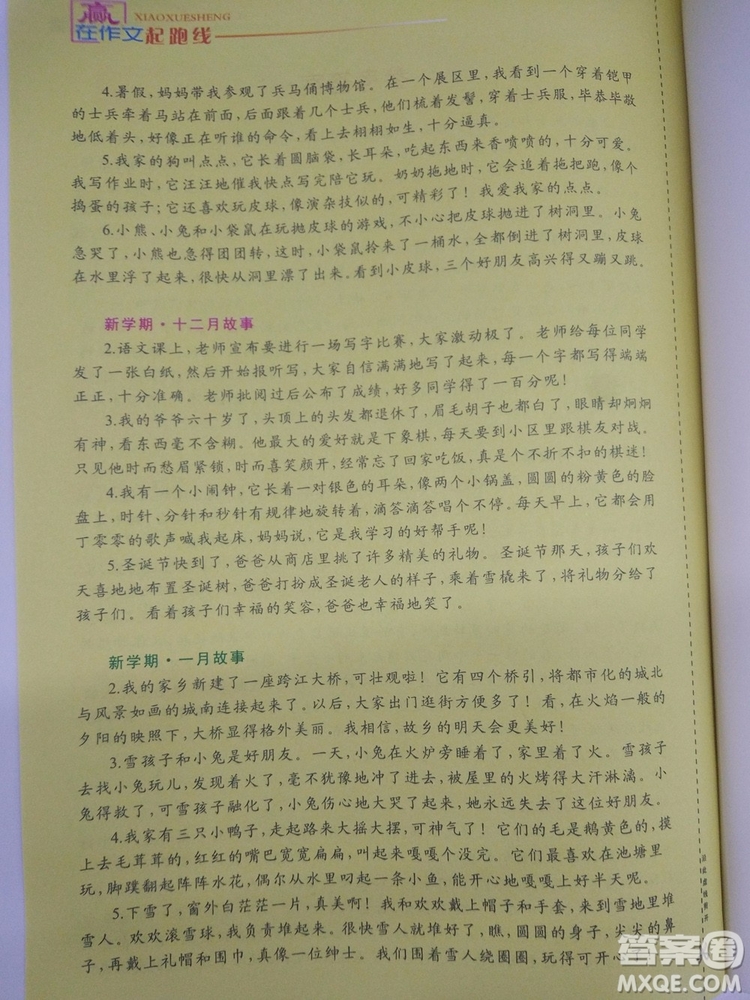 赢
XIAOXUESHENG
在作文起跑线
4.暑假，妈妈带我参观了兵马俑博物馆。在一个展区里，我看到一个穿着铠甲
的士兵牵着马站在前面，后面跟着几个士兵，他们梳着发髻，穿着士兵服，毕恭毕敬
地低着头，好像正在听谁的命令，看上去栩栩如生，十分逼真。
5.我家的狗叫点点，它长着圆脑袋，长耳朵，吃起东西来香喷喷的，十分可爱。
我写作业时，它汪汪地催我快写完陪它玩。奶奶拖地时，它咬着拖把跑，像个
捣蛋的孩子；它还喜欢玩皮球，像演杂技似的，可精彩了！我爱我家的点点。
6.小熊、小兔和小袋鼠在玩抛皮球的游戏，不小心把皮球抛进了树洞里。小兔
急哭了，小熊也急得团团转，这时，小袋鼠拎了一桶水，全都倒进了树洞里，皮球
在水里浮了起来，很快从洞里漂了出来。看到小皮球，三个好朋友高兴得又蹦又跳。
新学期·十二月故事
2.语文课上，老师宣布要进行一场写字比赛，大家激动极了。老师给每位同学
发了一张白纸，然后开始报听写，大家自信满满地写了起来，每个字都写得端端
正正，十分准确。老师批阅过后公布了成绩，好多同学得了一百分呢！
3.我的爷爷六十岁了，头顶上的头发都退休了，眉毛胡子也都白了，眼睛却炯炯
有神，看东西毫不含糊。他最大的爱好就是下象棋，每天都要到小区里跟棋友对战。
只见他时而愁眉紧锁，时而喜笑颜开，经常忘了回家吃饭，真是个不折不扣的棋迷！
4.我有一个小闹钟，它长着一对银色的耳朵，像两个小锅盖，圆圆的粉黄色的脸
盘上，时针、分针和秒针有规律地旋转着，滴答滴答唱个不停。每天早上，它都会用
丁零零的歌声喊我起床，妈妈说，它是我学习的好帮手呢！
5.圣诞节快到了，爸爸从商店里挑了许多精美的礼物。圣诞节那天，孩子们欢
天喜地地布置圣诞树，爸爸打扮成圣诞老人的样子，乘着雪橇来了，将礼物分给了
孩子们。看着孩子们幸福的笑容，爸爸也幸福地笑了。
新学期·一月故事
2.我的家乡新建了一座跨江大桥，可壮观啦！它有四个桥引，将都市化的城北
与风景如画的城南连接起来了。以后，大家出门逛街方便多了！看，在火焰一般的
夕阳的映照下，大桥显得格外美丽。我相信，故乡的明天会更美好！
3.雪孩子和小兔是好朋友。一天，小兔在火炉旁睡着了，家里着了火。雪孩子
去找小兔玩儿，发现着火了，毫不犹豫地冲了进去，被屋里的火烤得大汗淋漓。小
兔得救了，可雪孩子融化了，小兔伤心地大哭了起来，她永远失去了这位好朋友。
4.我家有三只小鸭子，走起路来大摇大摆，可神气了！它们的毛是鹅黄色的，摸
上去毛茸茸的，红红的嘴巴宽宽扁扁，叫起来嘎嘎个没完。它们最喜欢在池塘里
玩，脚蹼翻起阵阵水花，偶尔从水里叼起一条小鱼，能开心地嘎嘎上好半天呢！
5.下雪了，窗外白茫茫一片，真美！我和欢欢戴上帽子和手套，来到雪地里堆
雪人。欢欢滚雪球，我负责堆雪人。很快雪人就做好了，瞧，圆圆的身子，尖尖的鼻
子，再戴上礼帽和围巾，真像一位绅士。我们围着雪人绕圈圈，玩得可开心
答案圈
MXQE.COM